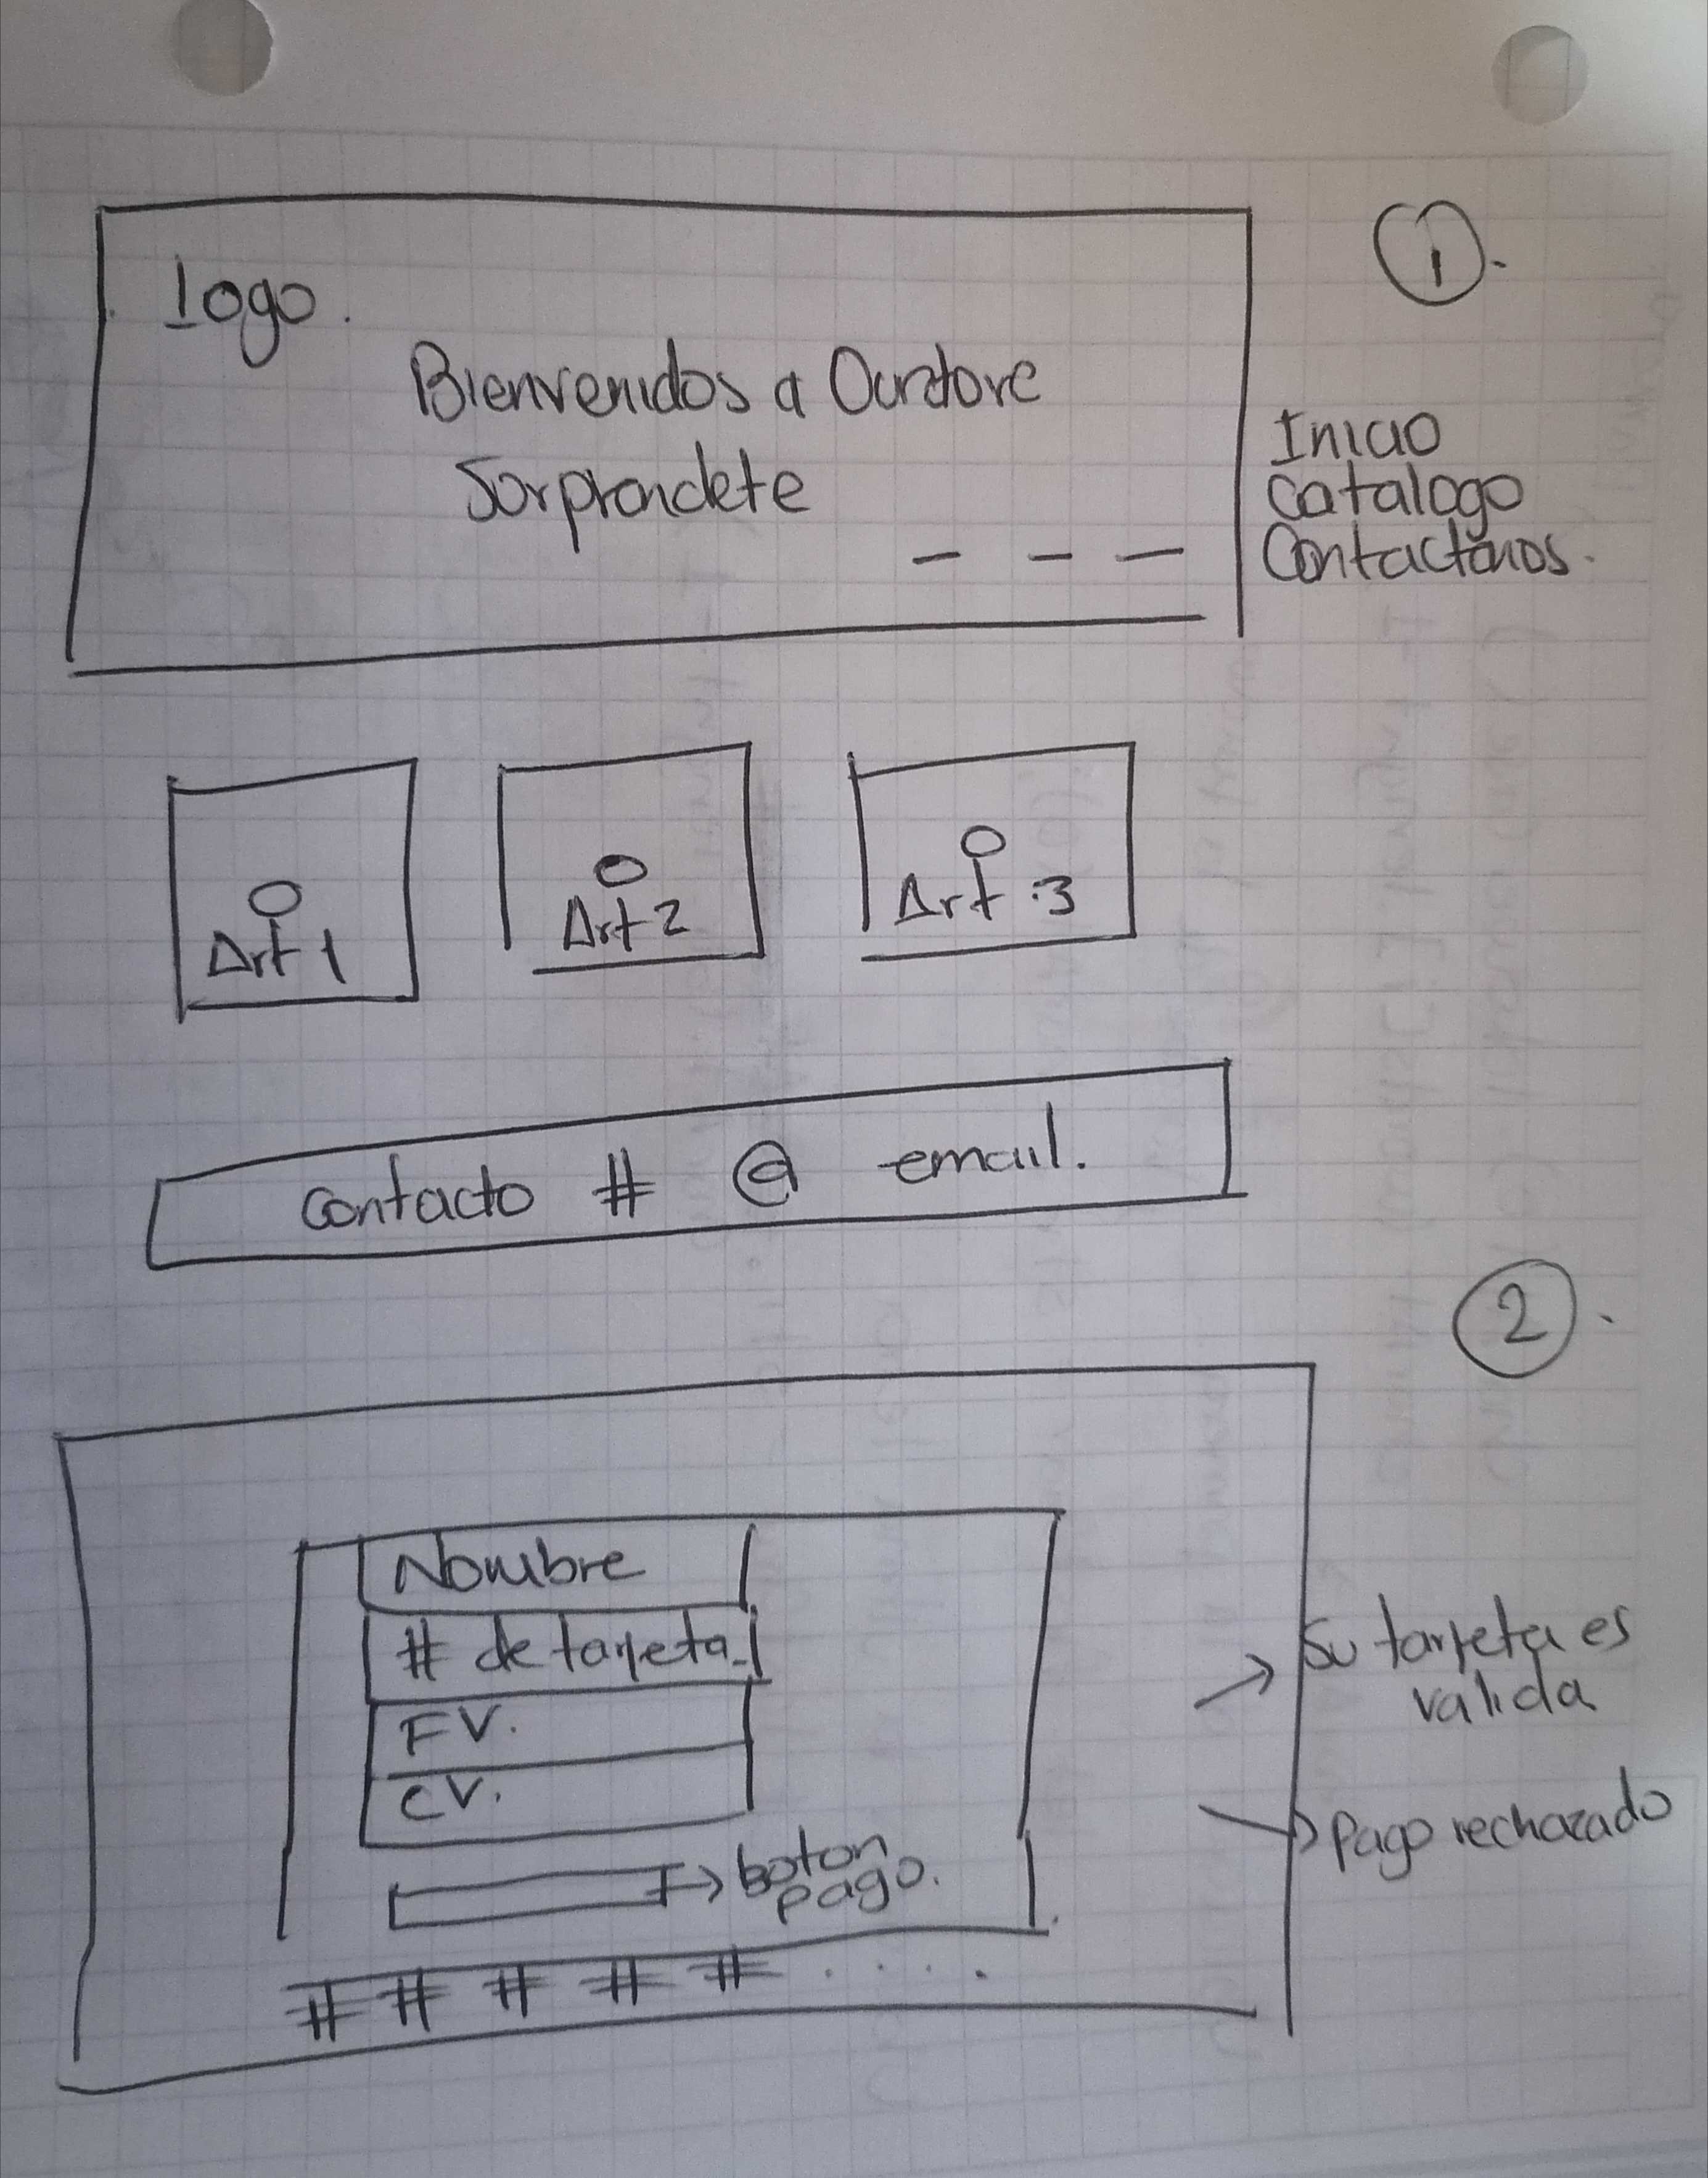 logo.
1.
Bienvenidos a Ourstore
Sorprendete
Inicio
Catalogo
Contactanos.
Art 1
Art 2
Art .3
Contacto # @ email.
2.
Nombre
# de tarjeta
FV.
CV.
boton
pago.
# # # # # . . . .
Su tarjeta es
valida
Pago rechazado